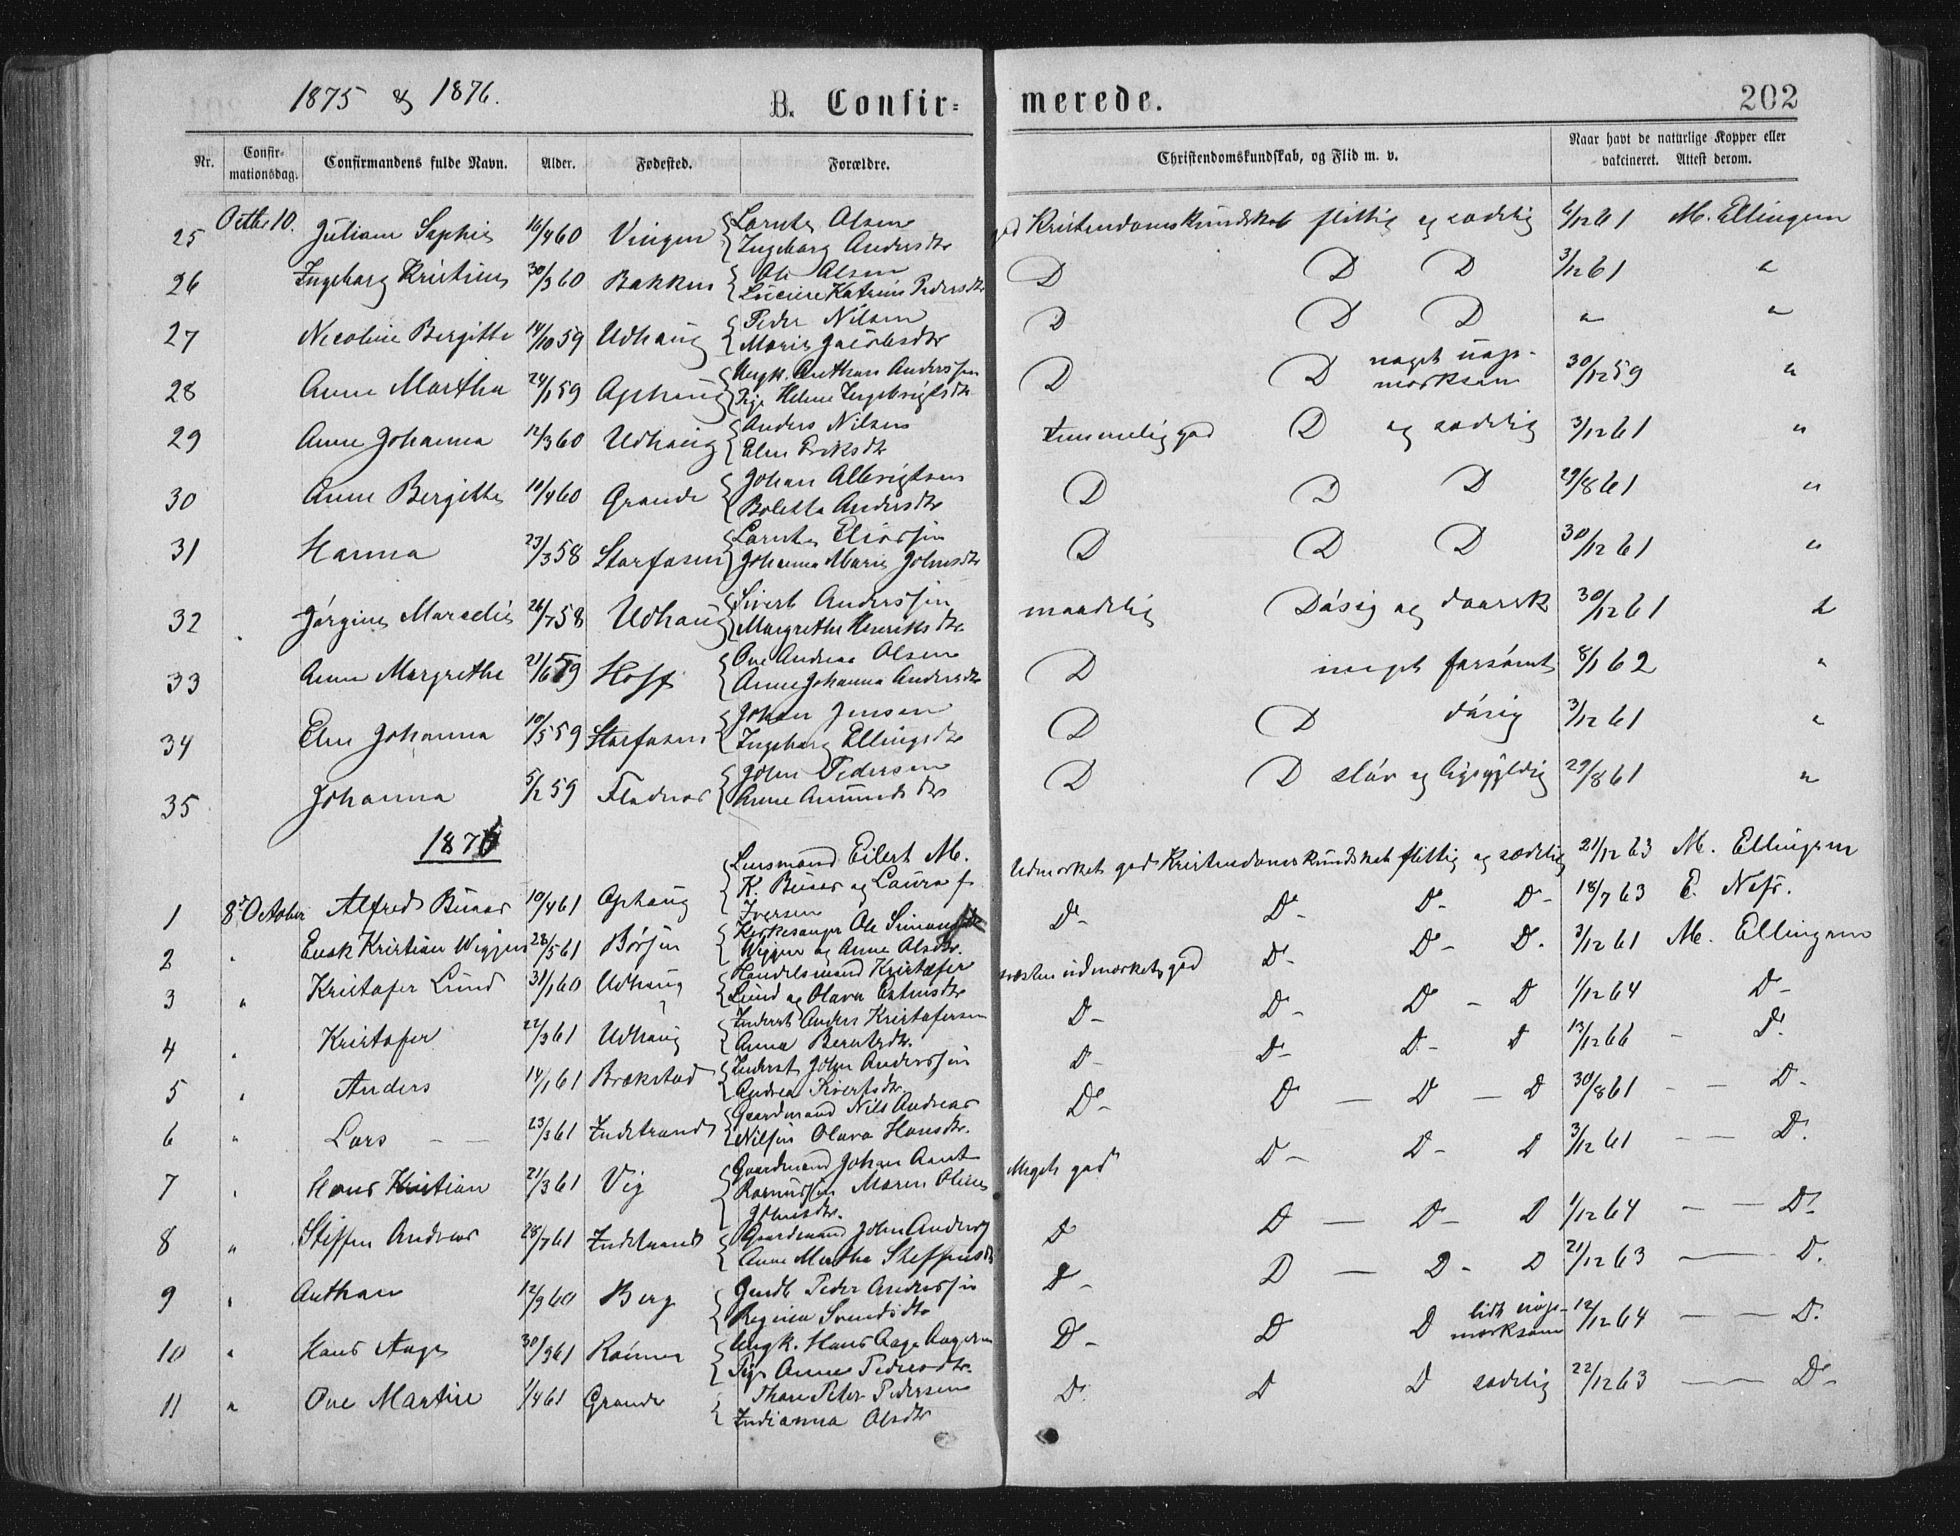 1875 & 1876.
B. Confirmerede.
202
Nr. Confirmationsdag. Confirmandens fulde Navn. Alder. Fødested. Forældre. Christendomskundskab, og Flid m. v. Naar havt de naturlige Kopper eller vakcineret. Attest derom.
25 Octbr 10. Juliane Sophie 16/4 60 Vingen Lornts Olsen Ingeborg Andersdtr god Kristendomskundskab flittig og sædelig 6/12 61 M. Ellingsen
26 Ingeborg Kristine 30/3 60 Bakken Ole Olsen Katrine Pedersdtr D D D 3/12 61 "
27 Nicoline Bergitte 14/10 59 Udhaug Peder Nilsen Marie Jacobsdtr D D D " "
28 Anne Martha 24/1 59 Ophaug Ungk. Anthon Anderssen Pige Helene Ingebrigtsdtr D D noget uopmærksom 30/12 59 "
29 Anne Johanna 12/3 60 Udhaug Anders Nilsen Elen Eriksdtr temmelig god D og sædelig 3/12 61 "
30 Anne Bergitte 10/4 60 Grande Johan Albrigtsen Boletta Andersdtr D D D 29/8 61 "
31 Hanna 23/3 58 Storfosen Lornts Johanna Marie Johnsdtr D D D 30/12 61 "
32 Jørgine Marselie 26/7 58 Udhaug Sivert Anderssen Margrethe Henriksdtr maadelig Døsig og doarsk 30/12 61 "
33 Anne Margrethe 21/6 59 Hoff Ove Andreas Olsen Anne Johanna Andersdtr D meget forsømt 8/1 62 "
34 Elen Johanna 10/5 59 Storfosen Johan Jensen Ingeborg Ellingsdtr D D døsig 3/12 61 "
35 Johanna 5/2 59 Fladnes John Pedersen Anne Amundsdtr D D sløv og ligegyldig 29/8 61 "
1876
1 8de October Alfred Buaas 10/4 61 Ophaug Lensmand Eilert M. K. Buaas og Laura f. Iversen Udmærket god Kristendomskundskab flittig og sædelig 21/12 63 M. Ellingsen
2 " Enok Kristian Wiggen 28/5 61 Børsen Kirkesanger Ole Simonsen Wiggen og Anne Olsdtr. D- D- D- D- 18/7 63 E. Næss.
3 " Kristofer Lund 31/1 60 Udhaug Handelsmand Kristofer Lund og Olava næsten udmærket god D- D- D. 3/12 61 M. Ellingsen
4 " Kristofer 22/3 61 Udhaug Inderst Anders Kristofersen Anna Berntsdtr. D- D- D- D 1/12 64 D-
5 " Anders 14/1 61 Brækstad Inderst John Anderssen Andrea Sivertsdtr. D- D- D- D 13/12 66 - D.
6 " Lars 23/3 61 Indstrand Gaardmand Nils Andreas Nilsen Olava Hansdtr. D- D - D - D 30/8 61 - - D-
7 " Hans Kristian 21/3 61 Vig Gaardmand Johan Arnt Maren Oline Johnsdtr. Meget god D- D- D 3/12 61 - - D.
8 " Steffen Andreas 28/7 61 Indstrand Gaardmand John Anders Anne Martha Steffensdtr D D - D- D 1/12 64 - - D-
9 " Anthon 12/9 60 Berg Peder Anderssen Regina Svendsdtr D- D - D- D 21/12 63 - D.
10 " Hans Aage 30/9 61 Ungk. Hans Aage Aagesen Pige Anne Pedersdtr. D- D D lidt uopmærksom 12/12 64 - - D.
11 " Ove Martin 1/4 61 Grande Thore Peter Pedersen Indianna Olsdtr D. D D sædelig 22/12 63 - - D-